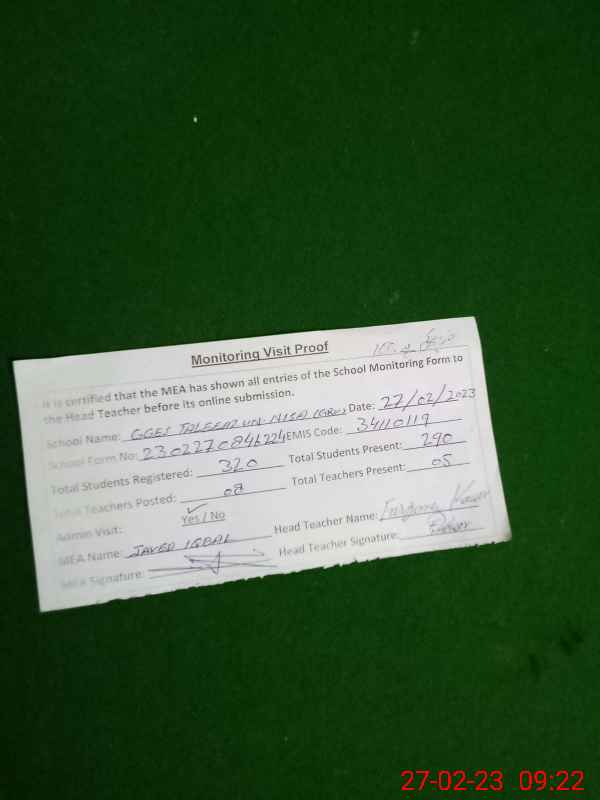 Monitoring Visit Proof
It is certified that the MEA has shown all entries of the School Monitoring Form to
the Head Teacher before its online submission.
School Name: GGES Date: 27/02/2023
School Form No: 230227084b224 EMIS Code: 34110119
Total Students Registered: 320 Total Students Present: 290
Total Teachers Posted: 08 Total Teachers Present: 05
Admin Visit: Yes / No
MEA Name: JAVED IQBAL Head Teacher Name:
MEA Signature: Head Teacher Signature:
27-02-23 09:22